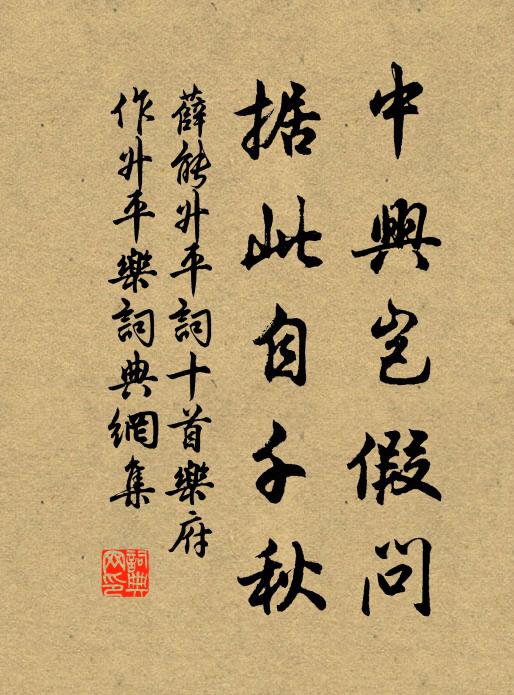 中興岂假問
据此自千秋
薛能升平詞十首樂府
作升平樂詞典網集
詞典
网印